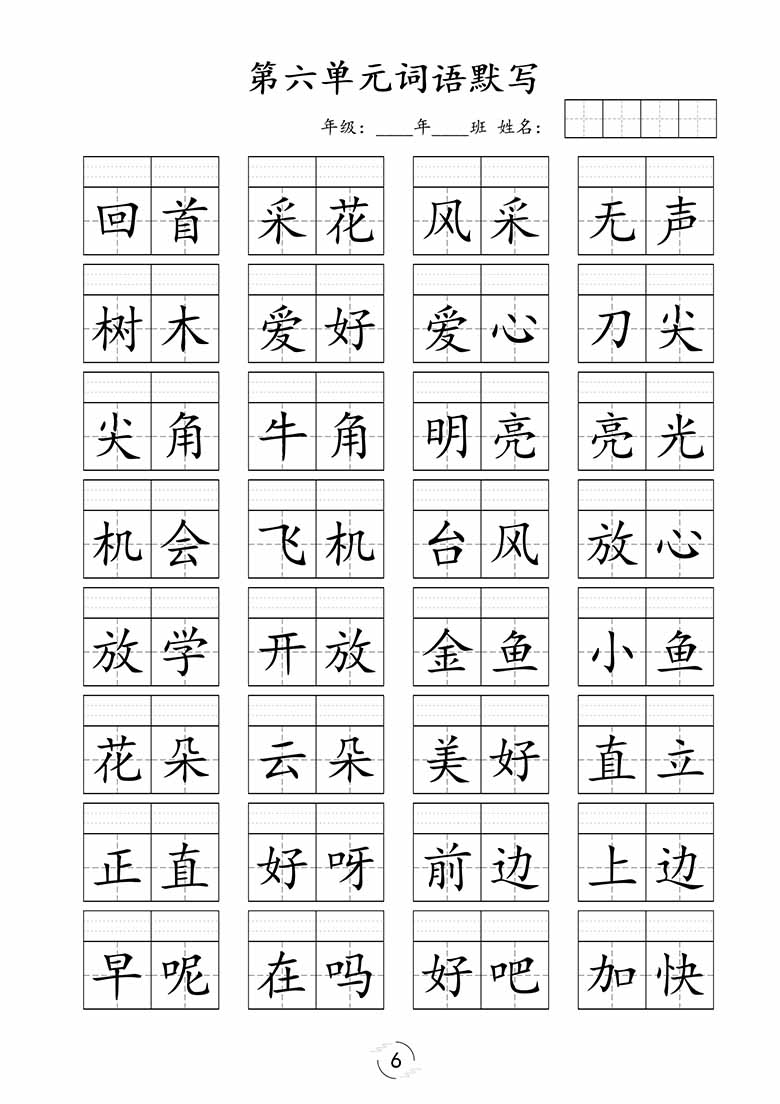 第六单元词语默写
年级：____年____班 姓名：
回首 采花 风采 无声
树木 爱好 爱心 刀尖
尖角 牛角 明亮 亮光
机会 飞机 台风 放心
放学 开放 金鱼 小鱼
花朵 云朵 美好 直立
正直 好呀 前边 上边
早呢 在吗 好吧 加快
6